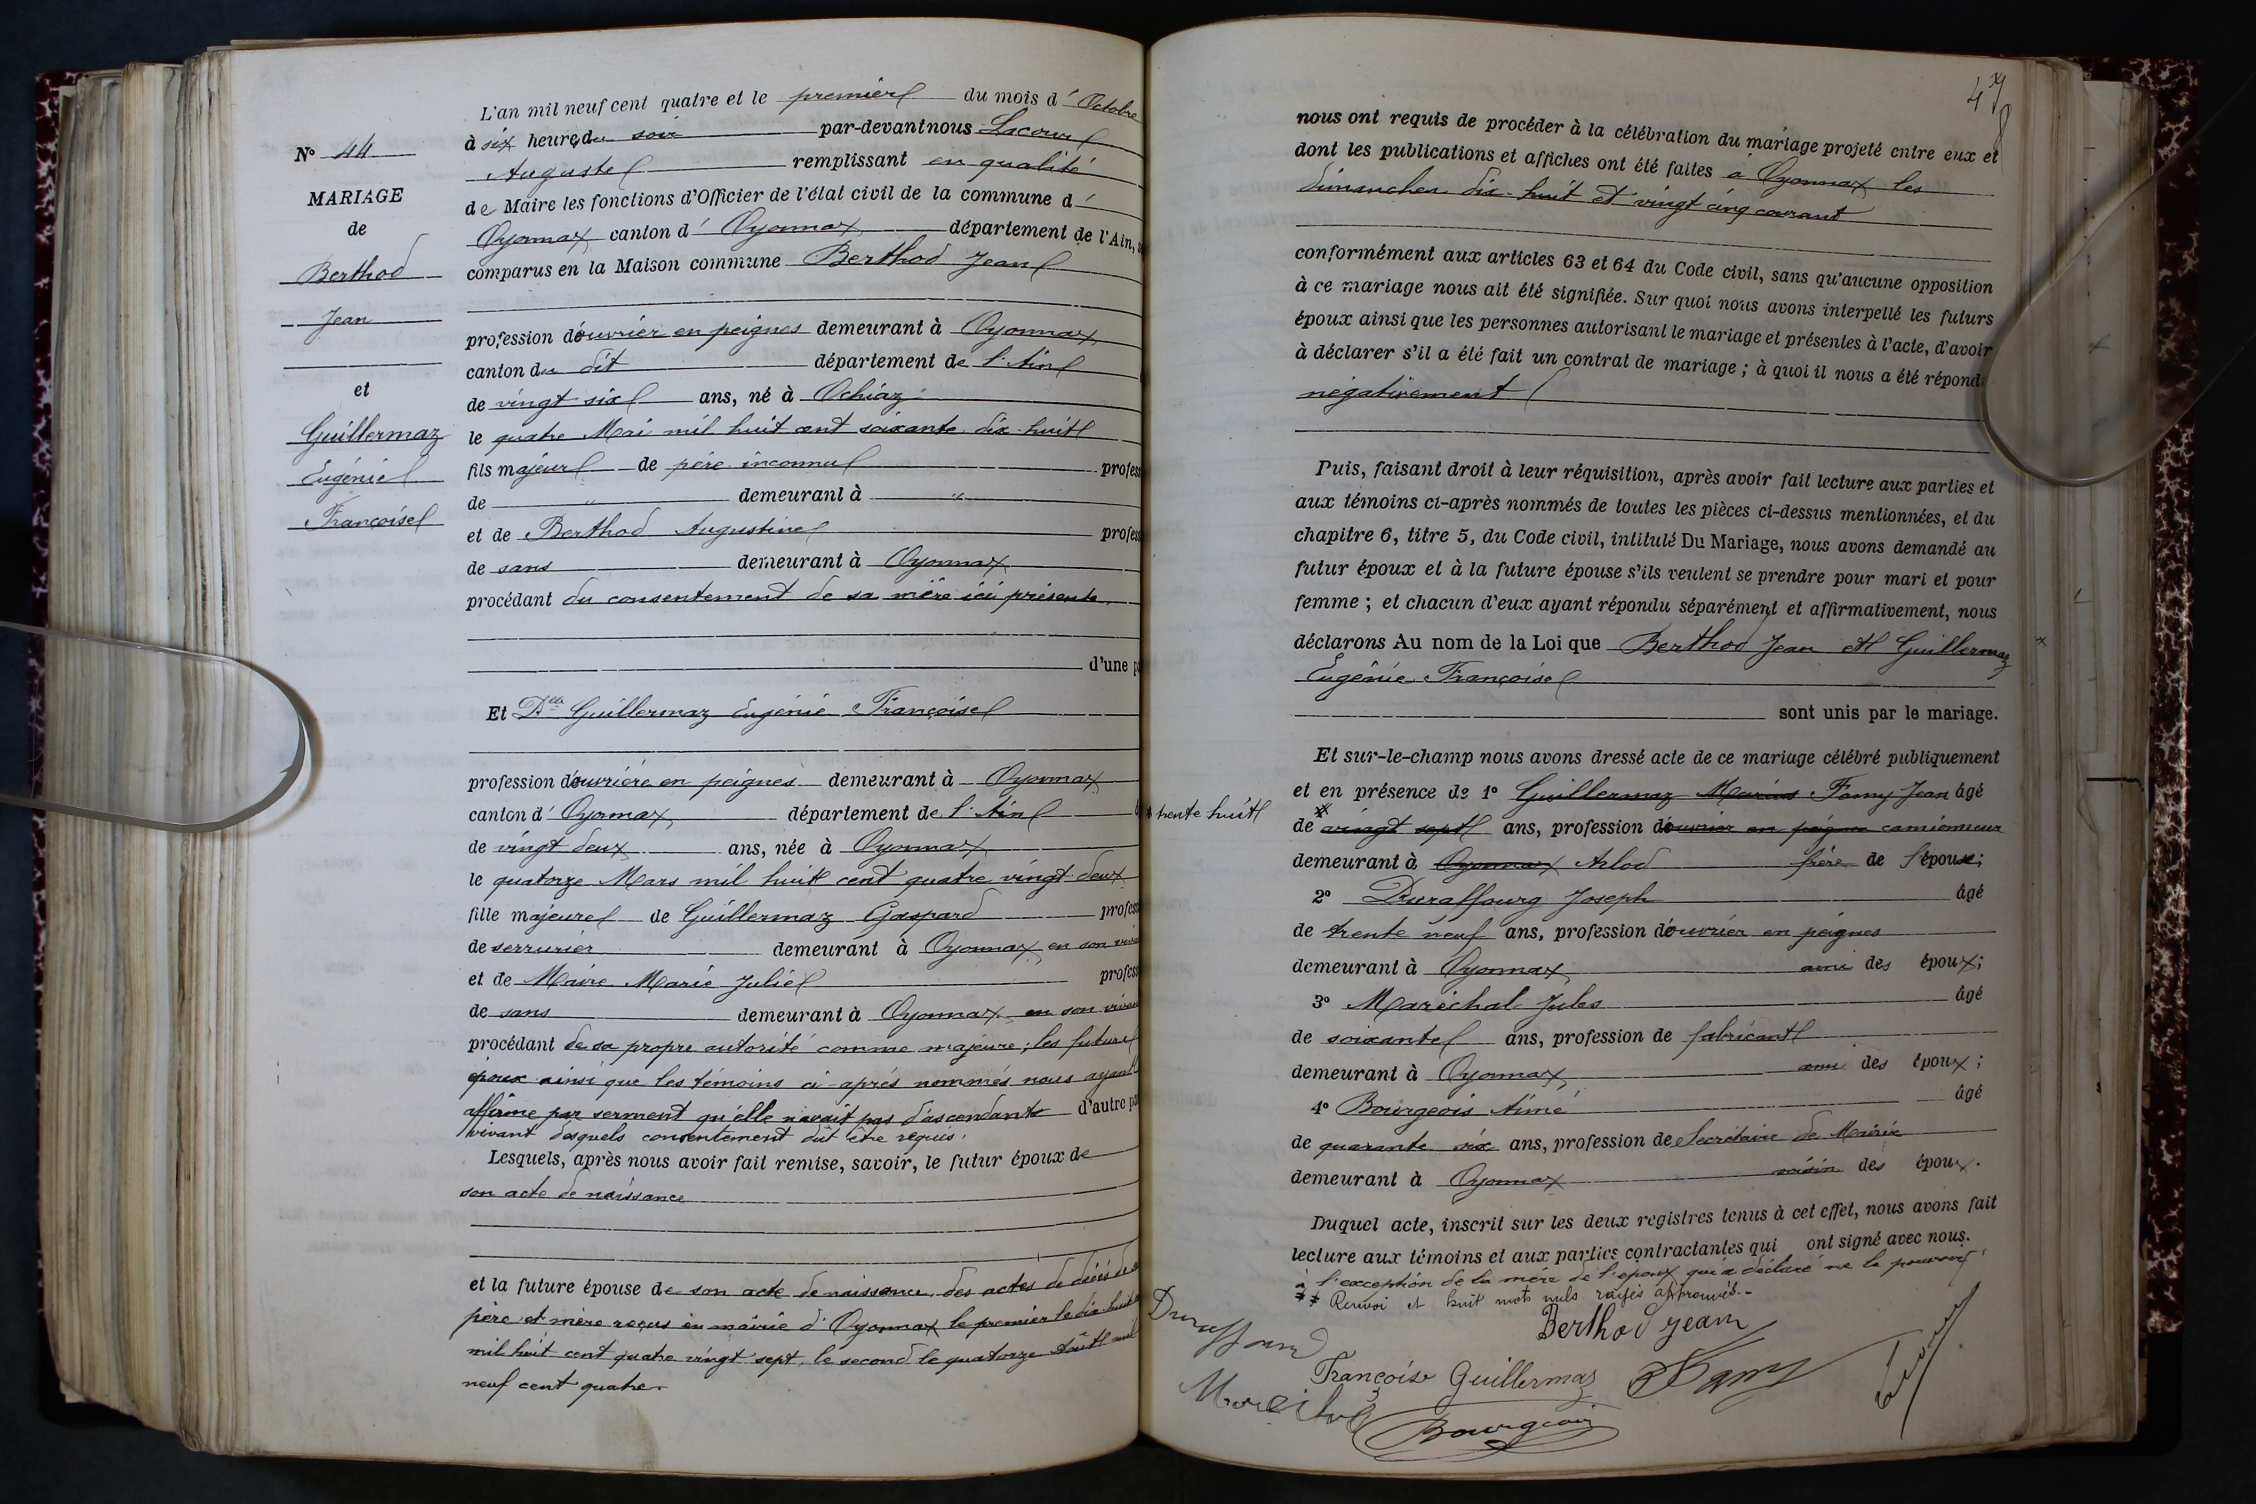 L'an mil neuf cent quatre et le premier du mois d' Octobre
à six heures du soir par-devant nous Lacour
Auguste remplissant en qualité
de Maire les fonctions d'Officier de l'état civil de la commune d'
Oyonnax canton d' Oyonnax département de l'Ain,
comparus en la Maison commune Berthod Jean
profession d'ouvrier en peignes demeurant à Oyonnax
canton du dit département de l'Ain
de vingt six ans, né à Ochiaz
le quatre Mai mil huit cent soixante dix-huit
fils majeur de père inconnu profess
de " demeurant à "
et de Berthod Augustine profess
de sans demeurant à Oyonnax
procédant du consentement de sa mère ici présente
d'une pa
N° 44
MARIAGE
de
Berthod
Jean
et
Guillermaz
Eugénie
Françoise
Et Dlle Guillermaz Eugénie Françoise
profession d'ouvrière en peignes demeurant à Oyonnax
canton d' Oyonnax, département de l'Ain
de vingt deux ans, née à Oyonnax
le quatorze Mars mil huit cent quatre vingt deux
fille majeure de Guillermaz Gaspard profess
de serrurier demeurant à Oyonnax en son viva
et de Maire Marie Julie profess
de sans demeurant à Oyonnax en son vivan
procédant de sa propre autorité comme majeure; les futurs
époux ainsi que les témoins ci-après nommés nous ayant
affirmé par serment qu'elle n'avait pas d'ascendants d'autre pa
vivant desquels consentement dût être requis.
Lesquels, après nous avoir fait remise, savoir, le futur époux de
son acte de naissance
et la future épouse de son acte de naissance, des actes de décès de
père et mère reçus en mairie d'Oyonnax le premier le dix-huit
mil huit cent quatre vingt sept, le second le quatorze Août mil
neuf cent quatre.
47
nous ont requis de procéder à la célébration du mariage projeté entre eux et
dont les publications et affiches ont été faites à Oyonnax les
dimanches dix-huit et vingt cinq courant
conformément aux articles 63 et 64 du Code civil, sans qu'aucune opposition
à ce mariage nous ait été signifiée. Sur quoi nous avons interpellé les futurs
époux ainsi que les personnes autorisant le mariage et présentes à l'acte, d'avoir
à déclarer s'il a été fait un contrat de mariage ; à quoi il nous a été répondu
négativement
Puis, faisant droit à leur réquisition, après avoir fait lecture aux parties et
aux témoins ci-après nommés de toutes les pièces ci-dessus mentionnées, et du
chapitre 6, titre 5, du Code civil, intitulé Du Mariage, nous avons demandé au
futur époux et à la future épouse s'ils veulent se prendre pour mari et pour
femme ; et chacun d'eux ayant répondu séparément et affirmativement, nous
déclarons Au nom de la Loi que Berthod Jean et Guillermaz
Eugénie Françoise
sont unis par le mariage.
Et sur-le-champ nous avons dressé acte de ce mariage célébré publiquement
et en présence de 1° Guillermaz Marius Famy Jean âgé
trente huit
de vingt sept ans, profession d'ouvrier en peignes camionneur
demeurant à Oyonnax Arlod frère de l'épouse;
2° Duraffourg Joseph âgé
de trente neuf ans, profession d'ouvrier en peignes
demeurant à Oyonnax ami des époux;
3° Maréchal Jules âgé
de soixante ans, profession de fabricant
demeurant à Oyonnax ami des époux;
4° Bourgeois Aimé âgé
de quarante six ans, profession de Secrétaire de Mairie
demeurant à Oyonnax voisin des époux.
Duquel acte, inscrit sur les deux registres tenus à cet effet, nous avons fait
lecture aux témoins et aux parties contractantes qui ont signé avec nous.
à l'exception de la mère de l'époux qui a déclaré ne le pouvoir
Renvoi et huit mots nuls rayés approuvés.-
Berthod Jean
Duraffourg
Françoise Guillermaz
Famy
Bourgeois